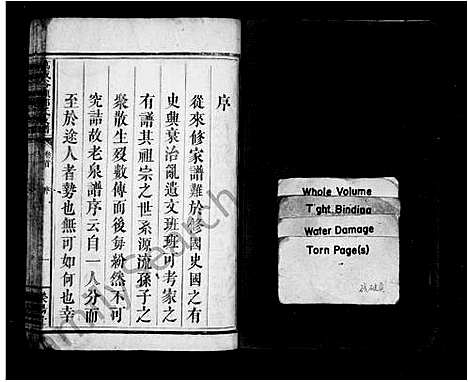 序
從來修家譜難於修國史國之有
史興衰治亂遺文班班可考家之
有譜其祖宗之世系源流孫子之
聚散生歿數傳而後每紛然不可
究詰故老泉譜序云自一人分而
至於途人者勢也無可如何也幸
卷首
序
Whole Volume
Tight Binding
Water Damage
Torn Page(s)